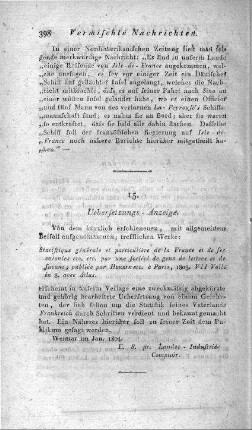 398 Vermischte Nachrichten.
In einer Nordamerikanischen Zeitung liest man fol-
gende merkwürdige Nachricht: „Es sind zu unserm Lande
einige Reisende von Isle-de-France angekommen, wel-
che aussagen, es sey vor einiger Zeit ein Dänisches
Schiff auf gedachter Insel angelangt, welches die Nach-
richt mitbrachte, dass es auf seiner Fahrt nach Süden an
einer wüsten Insel gelandet habe, wo es einen Officier
und fünf Mann von des verlornen La-Peyrouse's Schiffs-
mannschaft fand; es nahm sie an Bord; aber sie waren
so entkräftet, dass sie bald alle dahin starben. Dasselbe
Schiff soll der französischen Regierung auf Isle-de-
France noch nähere Berichte hierüber mitgetheilt ha-
ben."
15.
Uebersetzungs-Anzeige.
Von dem kürzlich erschienenen, mit allgemeinem
Beifall aufgenommenen, trefflichen Werke:
Statistique générale et particulière de la France et de ses
colonies etc. etc. par une Société de gens de lettres et de
savans; publiée par Herbin etc. à Paris, 1803. VII Voll.
in 8. avec Atlas.
erscheint in unserm Verlage eine zweckmässig abgekürzte
und gehörig bearbeitete Uebersetzung von einem Gelehr-
ten, der sich schon um die Statistik seines Vaterlands
Frankreich durch Schriften verdient und bekannt gemacht
hat. Ein Näheres hierüber soll zu seiner Zeit dem Pu-
blikum gesagt werden.
Weimar im Jan. 1804.
F. S. pr. Landes-Industrie-
Comptoir.